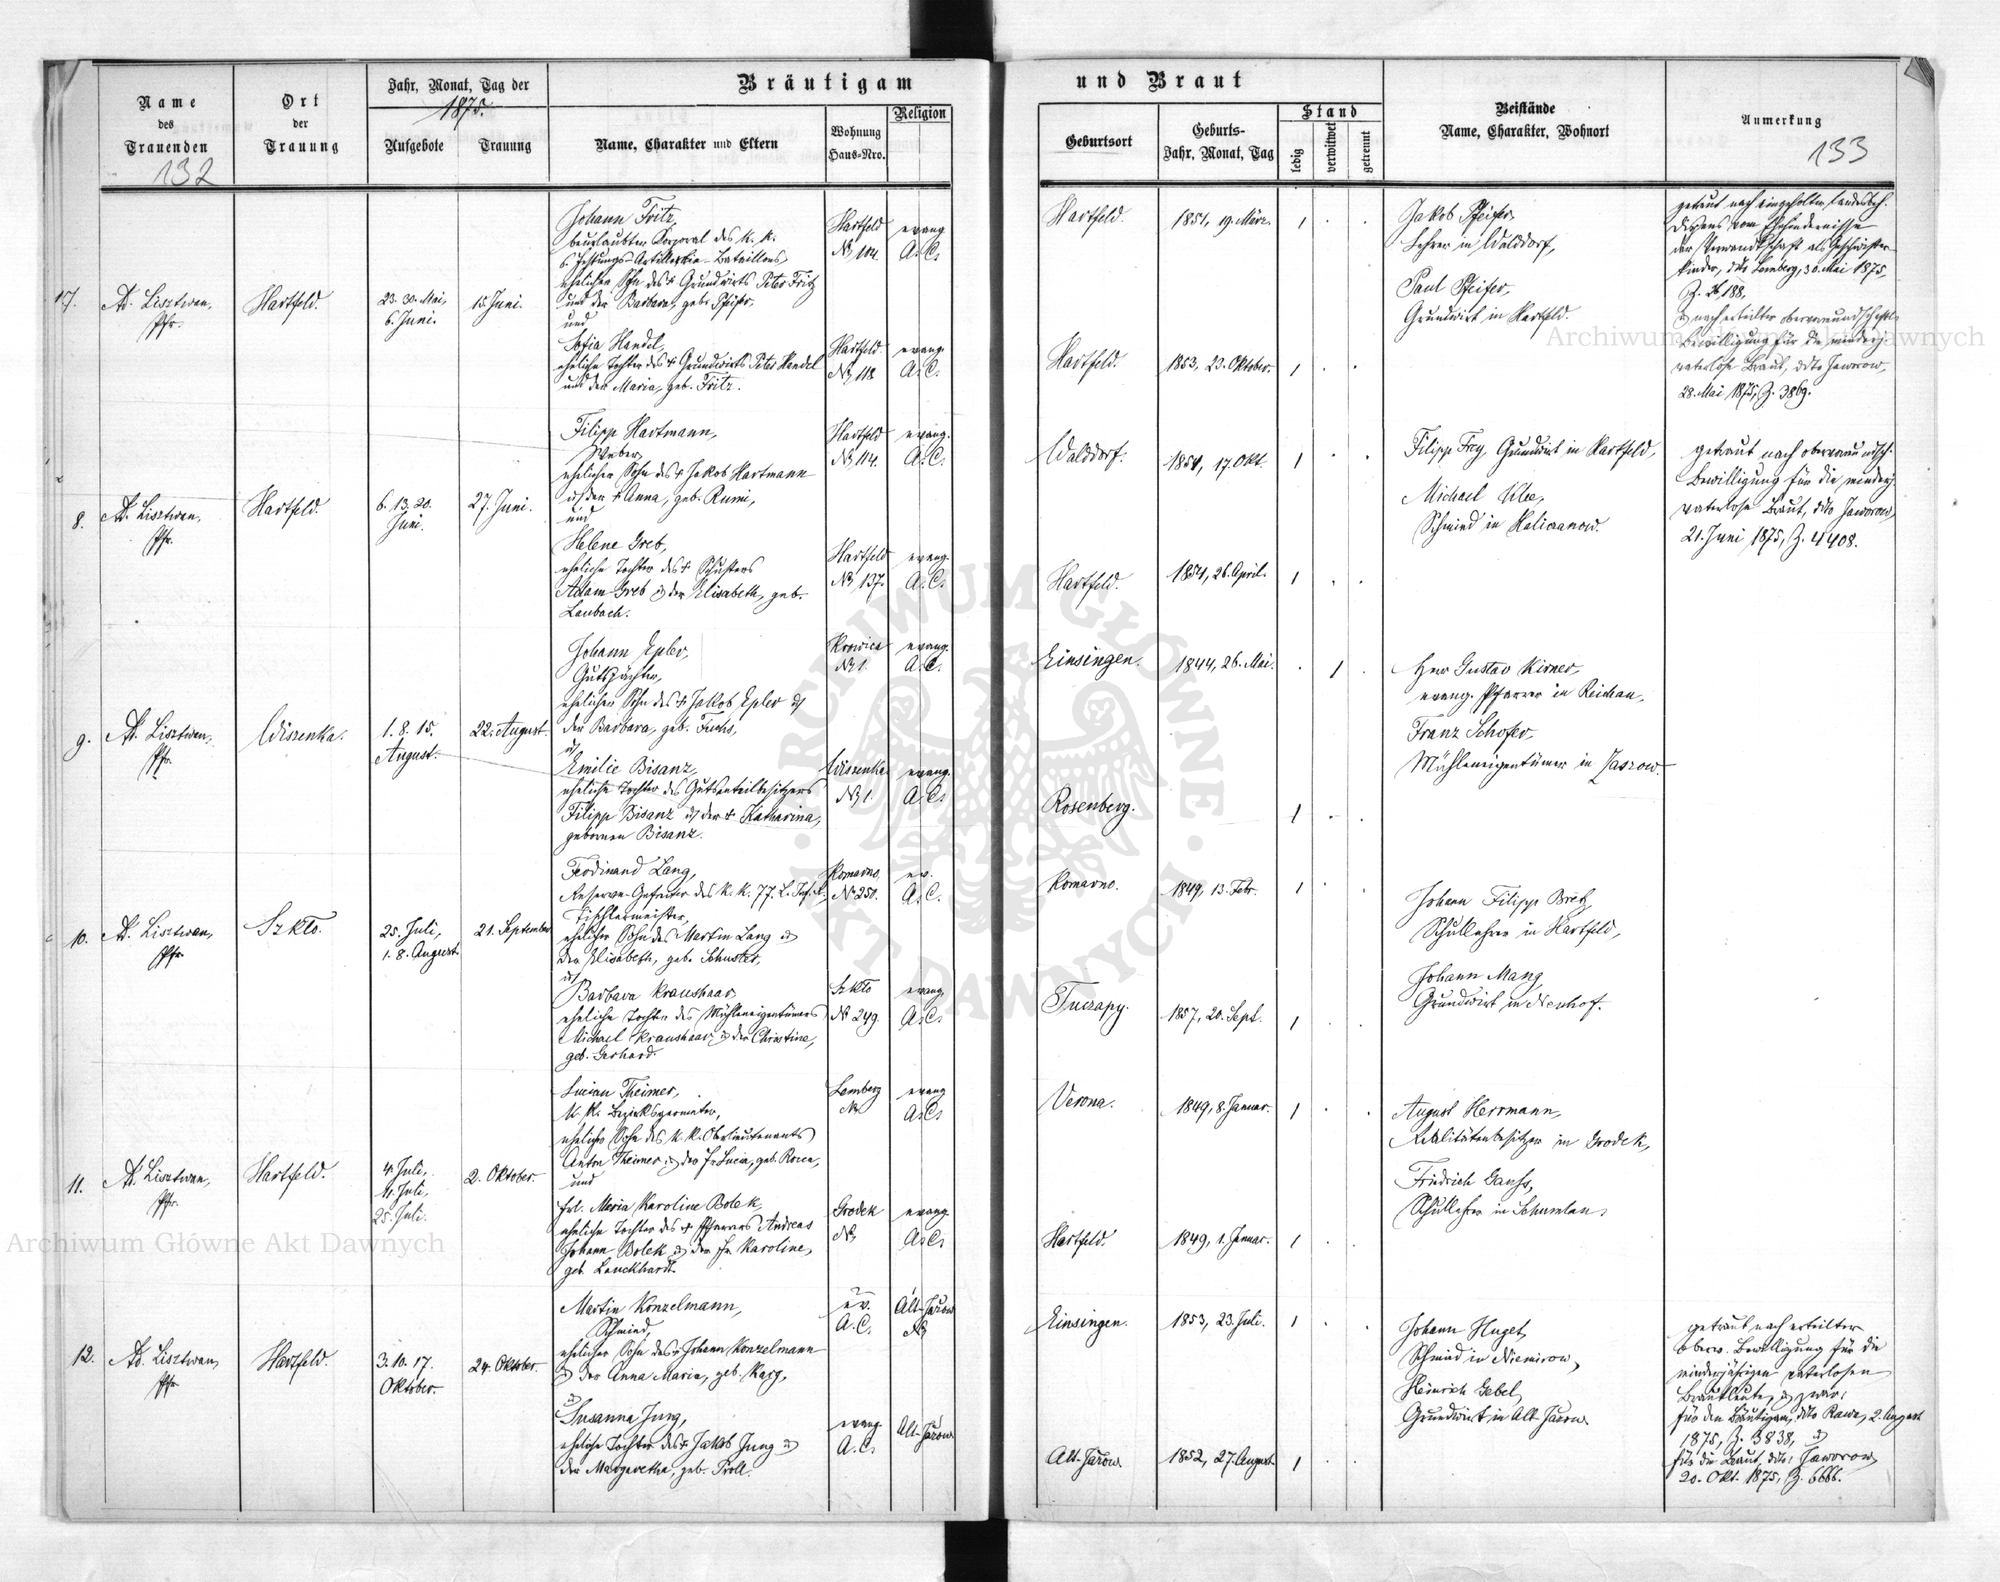 Name
des
Trauenden
132
Ort
der
Trauung
Jahr, Monat, Tag der
1875.
Aufgebote
Trauung
Bräutigam
Name, Charakter und Eltern
Wohnung
Haus-Nro.
Religion
und Braut
Geburtsort
Geburts-
Jahr, Monat, Tag
Stand
ledig
verwitwet
getrennt
Beistände
Name, Charakter, Wohnort
Anmerkung
133
Ad. Lisztwan,
Pfr.
Hartfeld.
23. 30. Mai,
6. Juni.
15. Juni.
Johann Fritz,
beurlaubter Korporal des k. k.
6. Festungs-Artillerie-Bataillons,
ehelicher Sohn des † Grundwirts Peter Fritz
und der Barbara, geb. Pfeifer,
und
Sofia Handel,
eheliche Tochter des † Grundwirts Peter Handel
und der Maria, geb. Fritz.
Hartfeld
No 104.
evang.
A. C.
Hartfeld.
No 118
evang.
A. C.
Hartfeld.
1851, 19. März.
1
Hartfeld.
1853, 23. Oktober.
1
Jakob Pfeifer,
Lehrer in Walddorf,
Paul Pfeifer,
Grundwirt in Hartfeld.
getraut nach eingeholter landesbeh.
Dispens vom Ehehindernisse
der Verwandtschaft als Geschwister-
kinder, ddto Lemberg, 30. Mai 1875,
& nach erteilter obervormundschaftl.
Bewilligung für die minderj.
vaterlose Braut, ddto Jaworow,
28. Mai 1875, Z. 3869.
8.
Ad. Lisztwan,
Pfr.
Hartfeld.
6. 13. 20.
Juni.
27. Juni.
Filipp Hartmann,
Weber,
ehelicher Sohn des † Jakob Hartmann
& der † Anna, geb. Rumi,
und
Helene Greb,
eheliche Tochter des † Schusters
Adam Greb & der Elisabeth, geb.
Laubach.
Hartfeld
No 114.
evang.
A. C.
Hartfeld
No 137.
evang.
A. C.
Walddorf.
1851, 17. Okt.
1
Hartfeld.
1854, 26. April.
1
Filipp Frey, Grundwirt in Hartfeld,
Michael Klee,
Schmied in Kalixanow.
getraut nach obervormundsch.
Bewilligung für die minderj.
vaterlose Braut, ddto Jaworow,
21. Juni 1875, Z. 4408.
9.
Ad. Lisztwan,
Pfr.
Wiszenka.
1. 8. 15.
August.
22. August.
Johann Epler,
Gutspächter,
ehelicher Sohn des † Jakob Epler &
der Barbara, geb. Fuchs,
&
Emilie Bisanz,
eheliche Tochter des Gutsanteilbesitzers
Filipp Bisanz & der † Katharina,
gebornen Bisanz.
Krowica
No 1.
evang.
A. C.
Wiszenka
No 1.
evang.
A. C.
Einsingen.
1844, 26. Mai.
1
Rosenberg.
1
Herr Gustav Kirner,
evang. Pfarrer in Reichau,
Franz Schofer,
Mühleneigentümer in
10.
Ad. Lisztwan,
Pfr.
Szkło.
25. Juli,
1. 8. August.
21. September
Ferdinand Lang,
Reserve-Gefreiter des k. k. 77. L. Inf. R.,
Tischlermeister,
ehelicher Sohn des Martin Lang &
der Elisabeth, geb. Schuster,
&
Barbara Kraushaar,
eheliche Tochter des Mühleneigentümers
Michael Kraushaar & der Christine,
geb. Gerhard.
Komarno
No 250.
ev.
A. C.
Szkło
No 249.
evang.
A. C.
Komarno.
1849, 13. Febr.
1
Tuczapy.
1857, 20. Sept.
1
Johann Filipp Bretz
Schullehrer in Hartfeld,
Johann Mang,
Grundwirt in Neuhof.
11.
Ad. Lisztwan,
Pfr.
Hartfeld.
4. Juli,
11. Juli,
25. Juli.
2. Oktober.
Lucian Theimer,
k. k. Bezirksgeometer,
ehelicher Sohn des k. k. Oberlieutenants
Anton Theimer & der Fr. Lucia, geb. Rocca,
und
Frl. Maria Karoline Bolek,
eheliche Tochter des † Pfarrers Andreas
Johann Bolek & der Fr. Karoline,
geb. Lauckhardt.
Lemberg
No
evang.
A. C.
Grodek
No
evang.
A. C.
Verona.
1849, 8. Januar.
1
Hartfeld.
1849, 1. Januar.
1
August Herrmann,
Realitätenbesitzer in Grodek,
Friedrich Ganss,
Schullehrer in Schumlau.
12.
Ad. Lisztwan,
Pfr.
Hartfeld.
3. 10. 17.
Oktober.
24. Oktober.
Martin Konzelmann,
Schmied,
ehelicher Sohn des † Johann Konzelmann
& der Anna Maria, geb. Karg,
&
Susanna Jung,
eheliche Tochter des † Jakob Jung &
der Margaretha, geb. Troll.
ev.
A. C.
Alt-Jazow
No
evang.
A. C.
Alt-Jazow
Einsingen.
1853, 23. Juli.
1
Alt-Jazow.
1852, 27. August.
1
Johann Huget,
Schmied in Niemirow,
Heinrich Gebel,
Grundwirt in Alt Jazow.
getraut nach erteilter
oberv. Bewilligung für die
minderjährigen vaterlosen
Brautleute, & zwar:
für den Bräutigam, ddto Rawa, 2. August
1875, Z. 3838, &
für die Braut, ddto: Jaworow,
20. Okt. 1875, Z. 6666.
Archiwum Główne Akt Dawnych
Archiwum Główne Akt Dawnych
ARCHIWUM GŁÓWNE AKT DAWNYCH